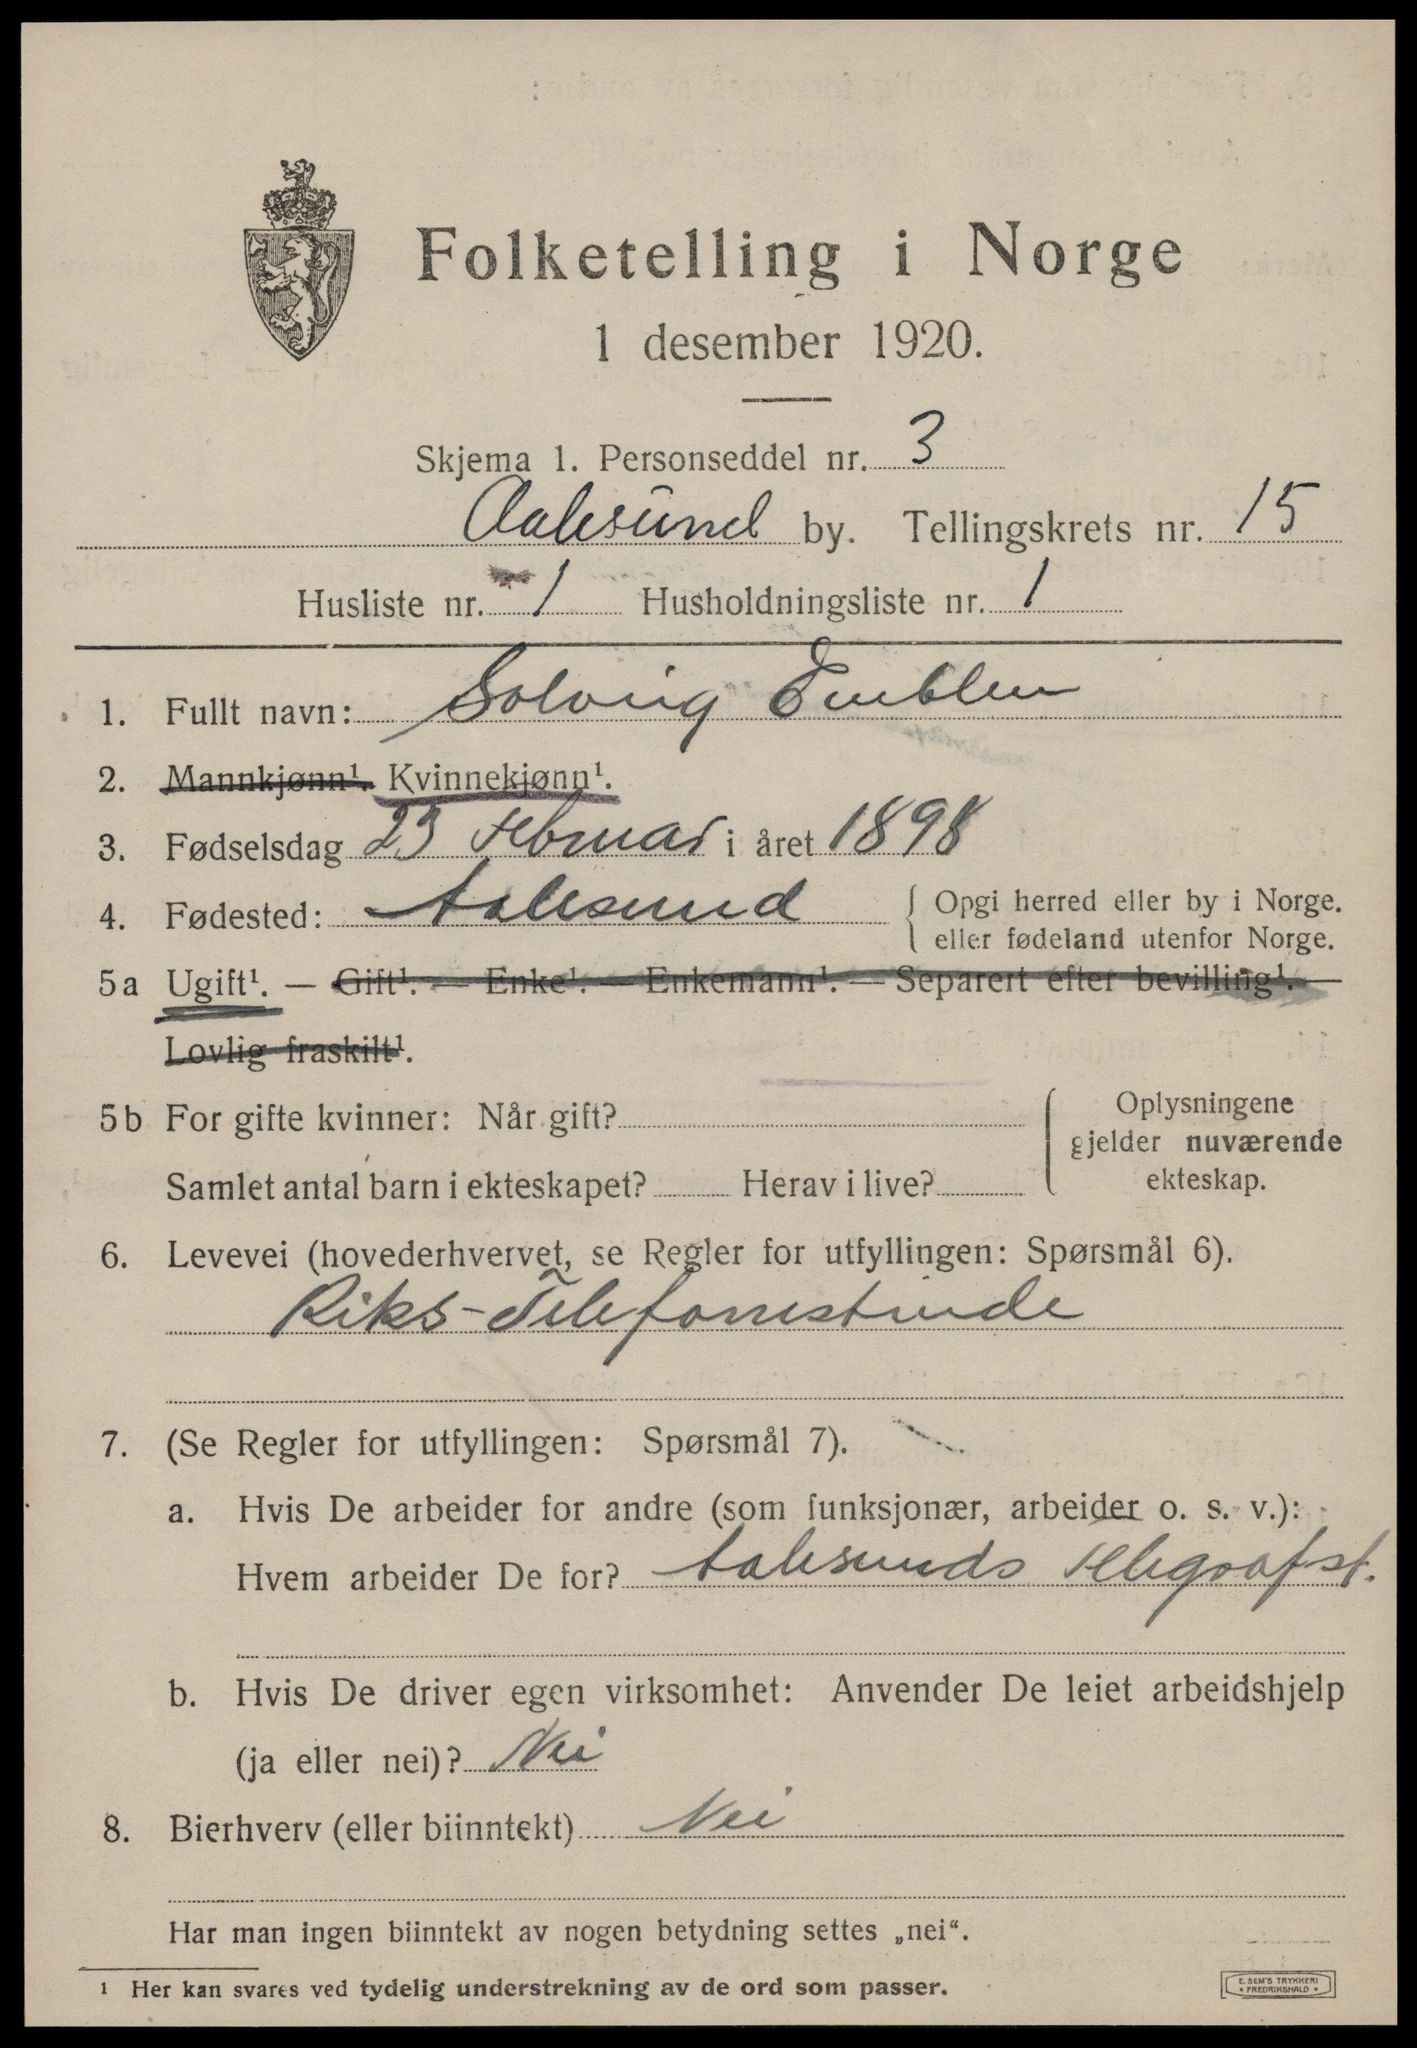 Folketelling i Norge
1 desember 1920.
Skjema 1. Personseddel nr. 3
Aalesund by. Tellingskrets nr. 15
Husliste nr. 1 Husholdningsliste nr. 1
1. Fullt navn: Solveig Emblem
2. Mannkjønn¹. Kvinnekjønn¹.
3. Fødselsdag 23 Februar i året 1898
4. Fødested: Aalesund { Opgi herred eller by i Norge.
eller fødeland utenfor Norge.
5a Ugift¹. — Gift¹. — Enke¹. — Enkemann¹. — Separert efter bevilling¹. —
Lovlig fraskilt¹.
5b For gifte kvinner: Når gift?
Samlet antal barn i ekteskapet? Herav i live?
Oplysningene
gjelder nuværende
ekteskap.
6. Levevei (hovederhvervet, se Regler for utfyllingen: Spørsmål 6).
Riks-Telefonistinde
7. (Se Regler for utfyllingen: Spørsmål 7).
a. Hvis De arbeider for andre (som funksjonær, arbeider o. s. v.):
Hvem arbeider De for? Aalesunds Telegrafst.
b. Hvis De driver egen virksomhet: Anvender De leiet arbeidshjelp
(ja eller nei)? Nei
8. Bierhverv (eller biinntekt) Nei
Har man ingen biinntekt av nogen betydning settes „nei“.
¹ Her kan svares ved tydelig understrekning av de ord som passer.
E. SEM'S TRYKKERI
FREDRIKSHALD